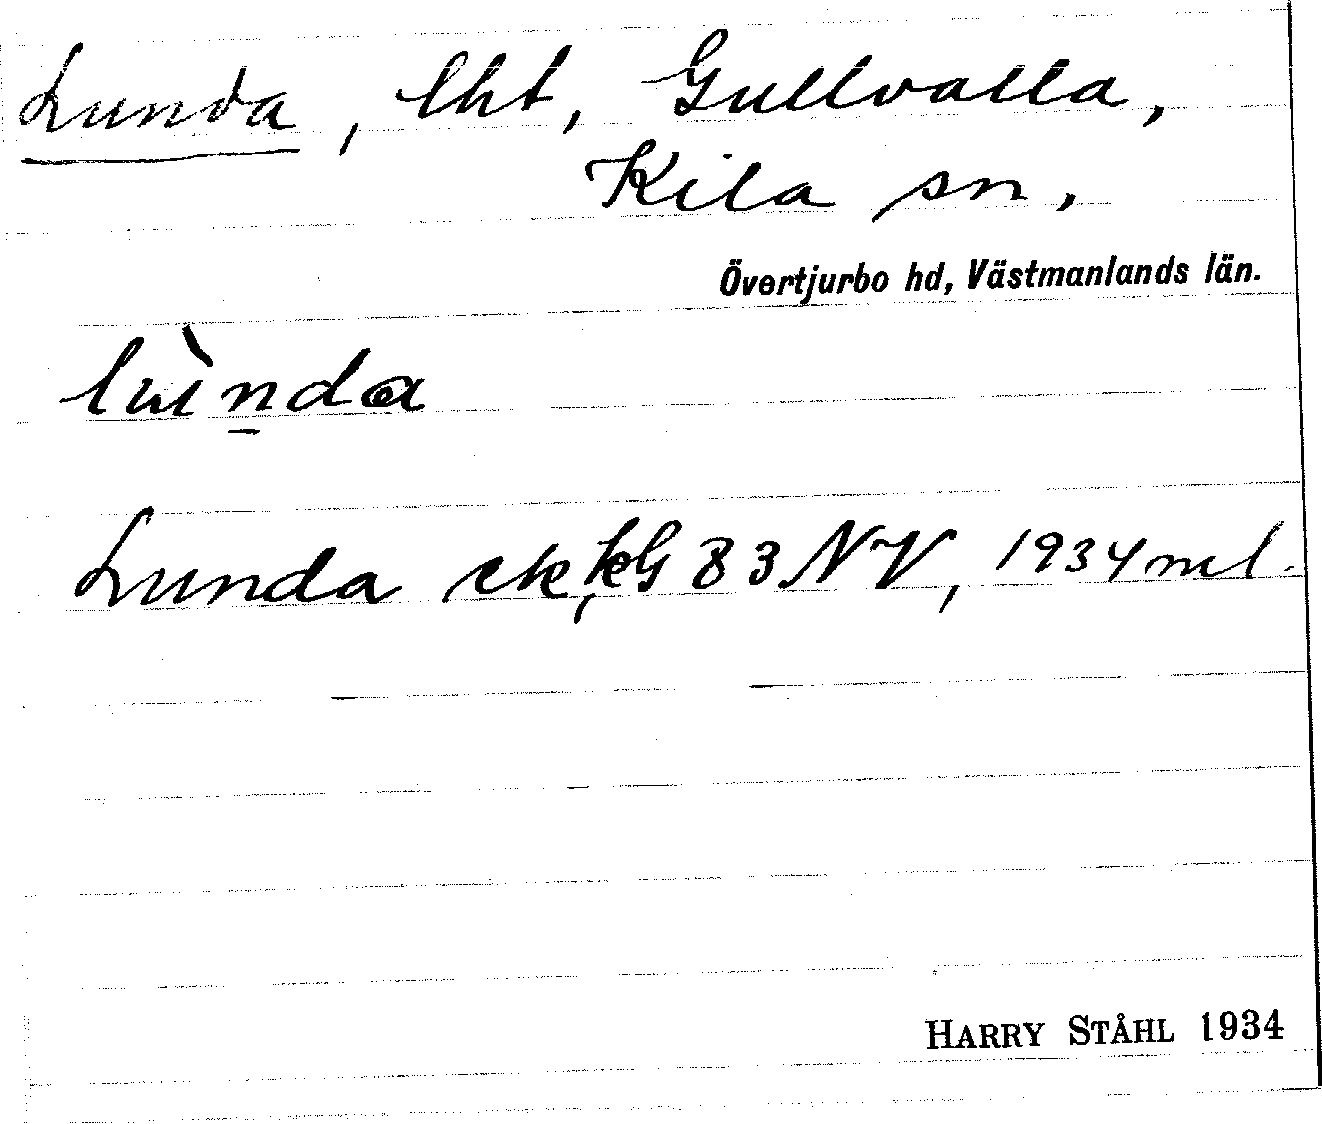 Lunda, lht, Gullvalla,
Kila sn,
Övertjurbo hd, Västmanlands län.
lùnda
Lunda ek, kG 83 NV, 1934 ml.
HARRY STÅHL 1934